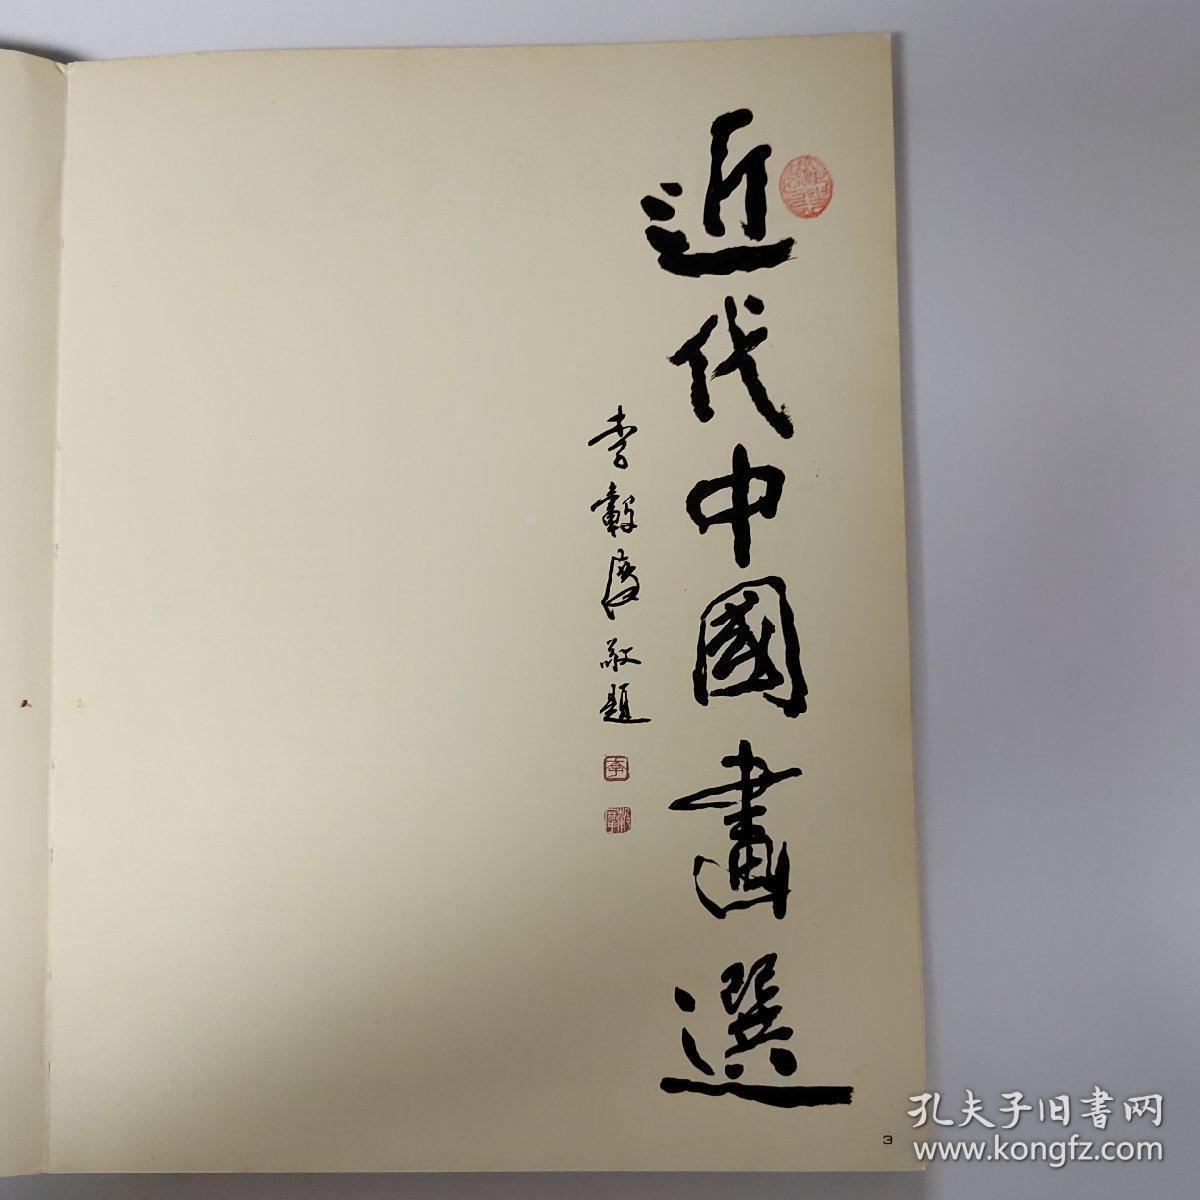 近代中國畫選
李穀度敬題
李
3
孔夫子旧书网
www.kongfz.com